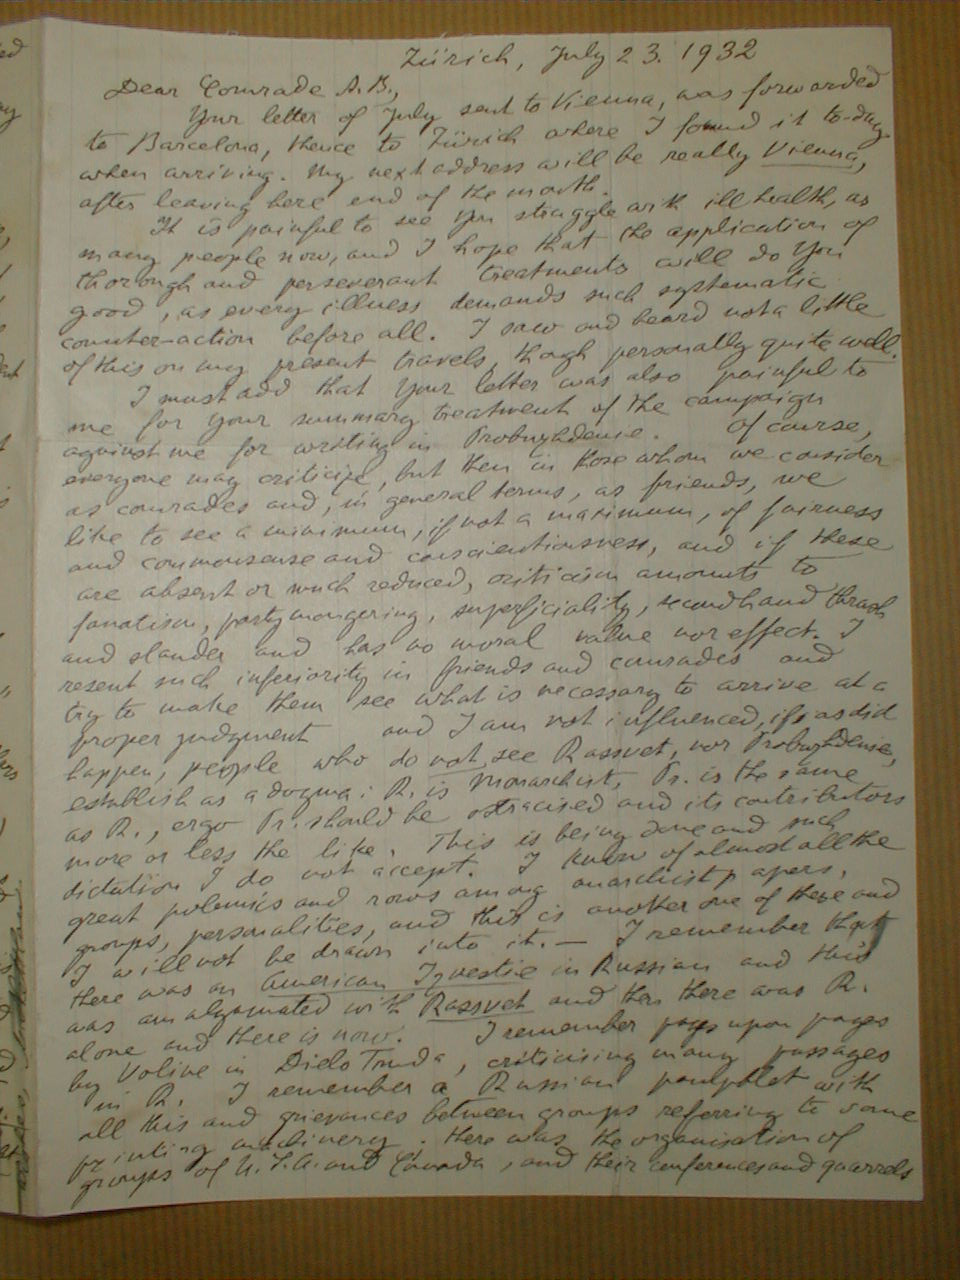 Zürich, July 23. 1932
Dear Comrade A.B.,
Your letter of July sent to Vienna, was forwarded
to Barcelona, thence to Zürich where I found it to-day
when arriving. My next address will be really Vienna,
after leaving here end of the month.
It is painful to see you struggle with ill health, as
many people now, and I hope that the application of
thorough and perseverant treatments will do you
good, as every illness demands such systematic
counter-action before all. I saw and heard not a little
of this on my present travels, though personally quite well.
I must add that your letter was also painful to
me for your summary treatment of the campaign
against me for writing in Probuzhdenie. Of course,
everyone may criticize, but then in those whom we consider
as comrades and, in general terms, as friends, we
like to see a minimum, if not a maximum, of fairness
and commonsense and conscientiousness, and if these
are absent or much reduced, criticism amounts to
fanatism, partymongering, superficiality, secondhand thrash
and slander and has no moral value nor effect. I
resent such inferiority in friends and comrades and
try to make them see what is necessary to arrive at a
proper judgment and I am not influenced, if, as did
happen, people who do not see Rassvet, nor Probuzhdenie,
establish as a dogma: R. is Monarchist, Pr. is the same
as R., ergo Pr. should be ostracised and its contributors
more or less the like. This is being done and such
dictation I do not accept. I know of almost all the
great polemics and rows among anarchist papers,
groups, personalities, and this is another one of these and
I will not be drawn into it. — I remember that
there was an American Izvestie in Russian and this
was amalgamated with Rassvet and then there was R.
alone and there is now. I remember pages upon pages
by Voline in Dielo Truda, criticising many passages
in R. I remember a Russian pamphlet with
all this and grievances between groups referring to some
printing machinery. There was the organisation of
groups of U.S.A. and Canada, and their conferences and quarrels